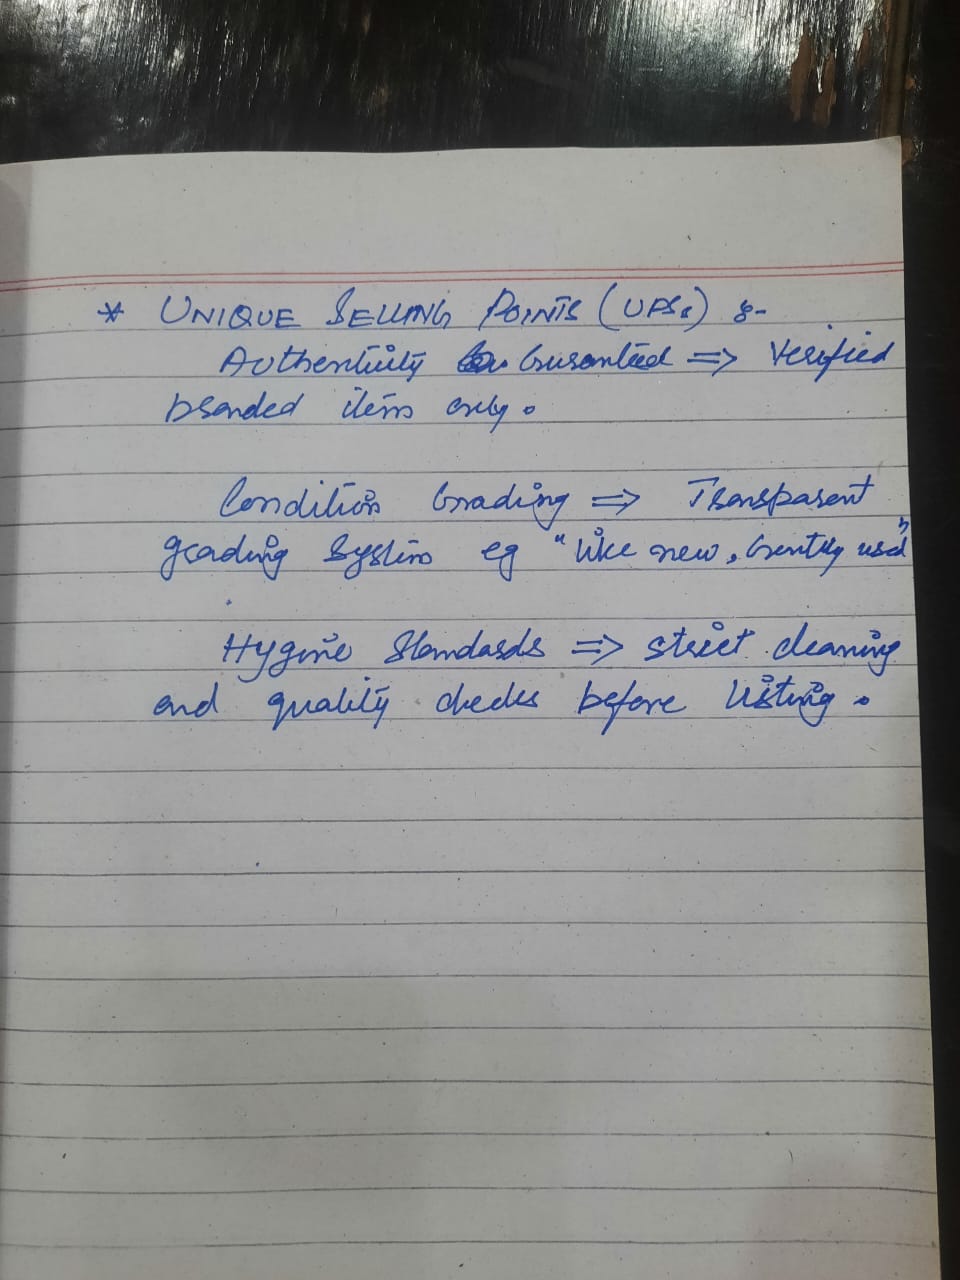 * UNIQUE SELLING POINTS (UPSs) :-
Authenticity Gurantied => Verified
branded items only.
Condition Grading => Transparent
grading system eg "like new, Gently used"
Hygine Standards => strict cleaning
and quality checks before listing.